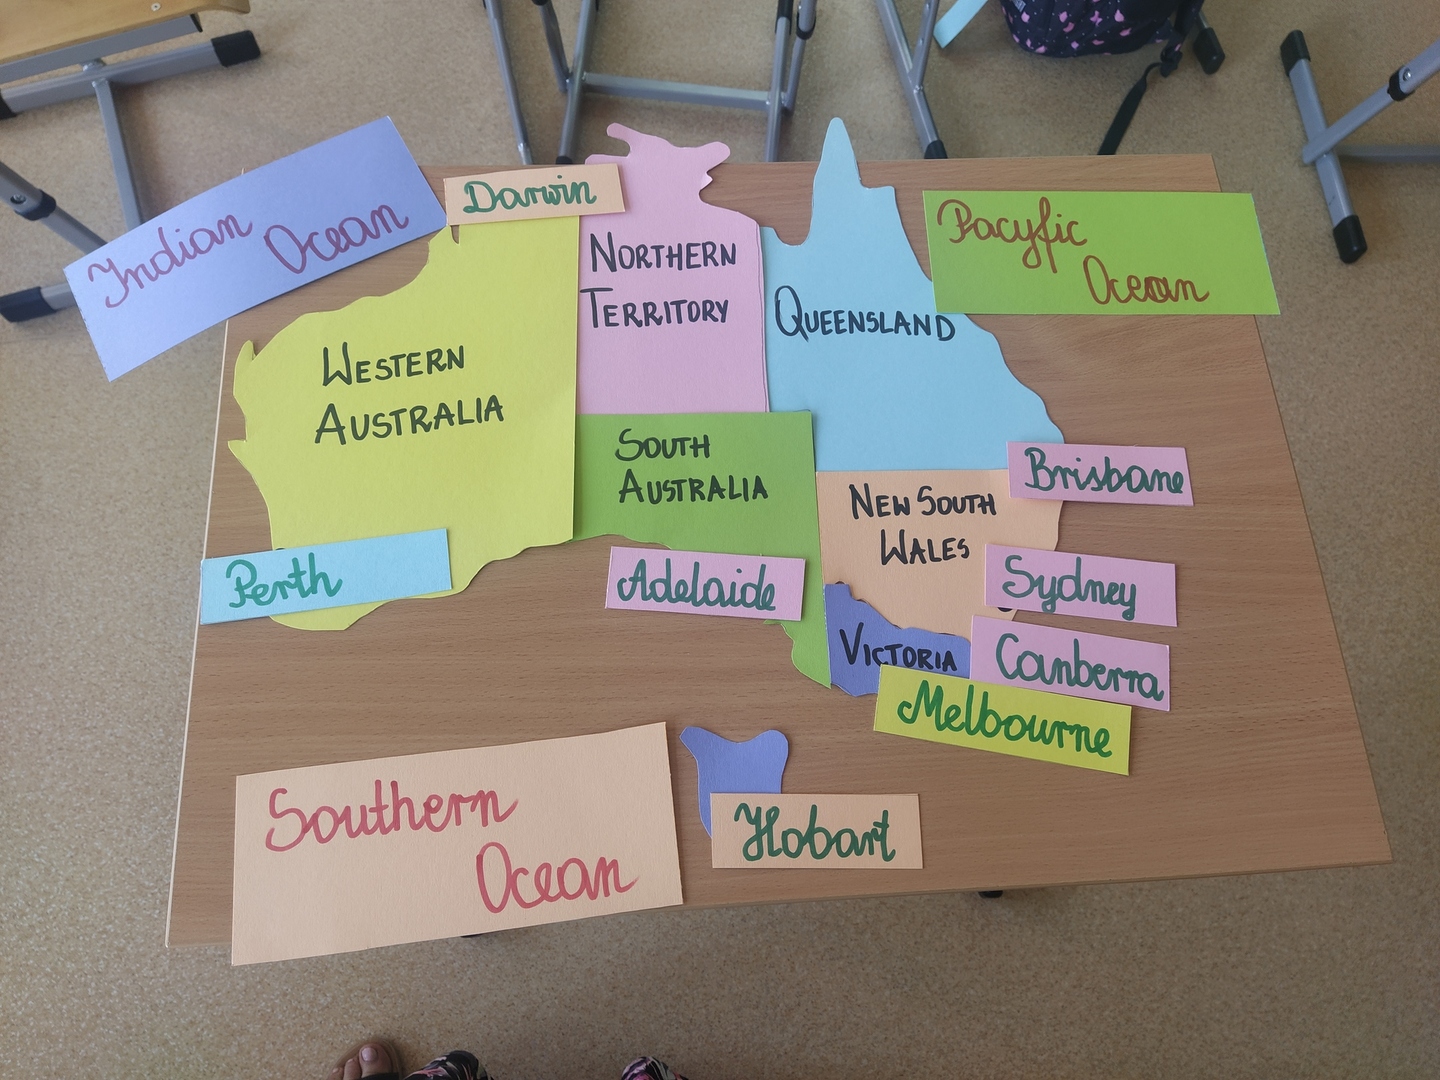 Indian
Ocean
Darwin
Northern
Territory
Queensland
Pacyfic
Ocean
Western
Australia
South
Australia
New South
Wales
Brisbane
Perth
Adelaide
Sydney
Victoria
Canberra
Melbourne
Southern
Ocean
Hobart